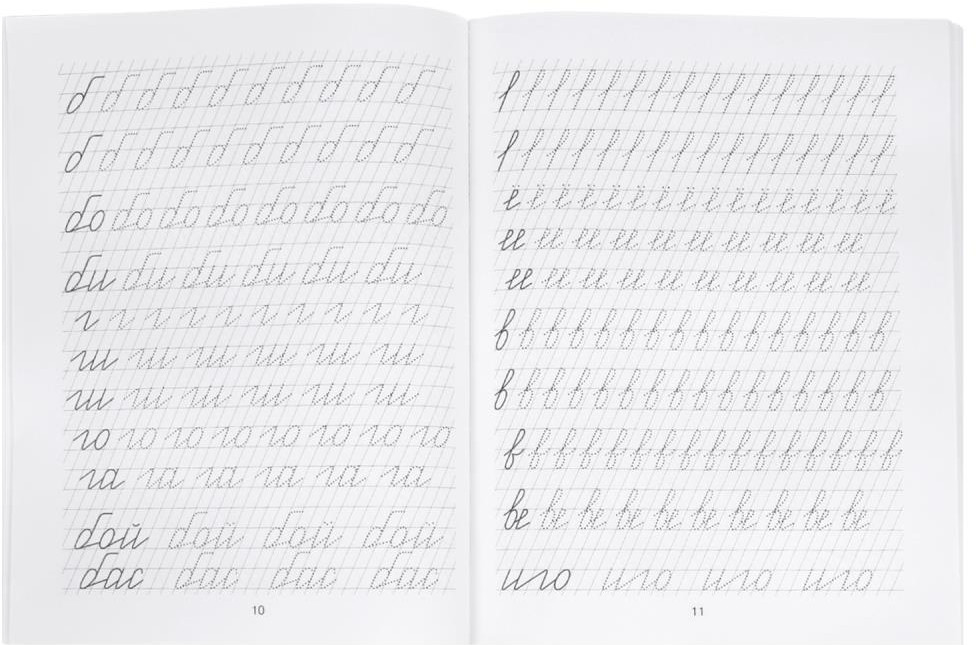 б б б б б б б б б б
б б б б б б б б б б
бо бо бо бо бо бо бо бо
би би би би би би
г г г г г г г г г г
ги ги ги ги ги ги
ги ги ги ги ги ги
го го го го го го го го
га га га га га га
бой бой бой бой
бас бас бас бас
10
ё ё ё ё ё ё ё ё ё ё ё ё ё ё ё ё
ее ее ее ее ее ее ее ее ее ее
ее ее ее ее ее ее ее ее ее ее
в в в в в в в в в в в в в в в в
в в в в в в в в в в в в в в в в
в в в в в в в в в в в в в в в в
ве ве ве ве ве ве ве ве ве ве
иго иго иго иго
11